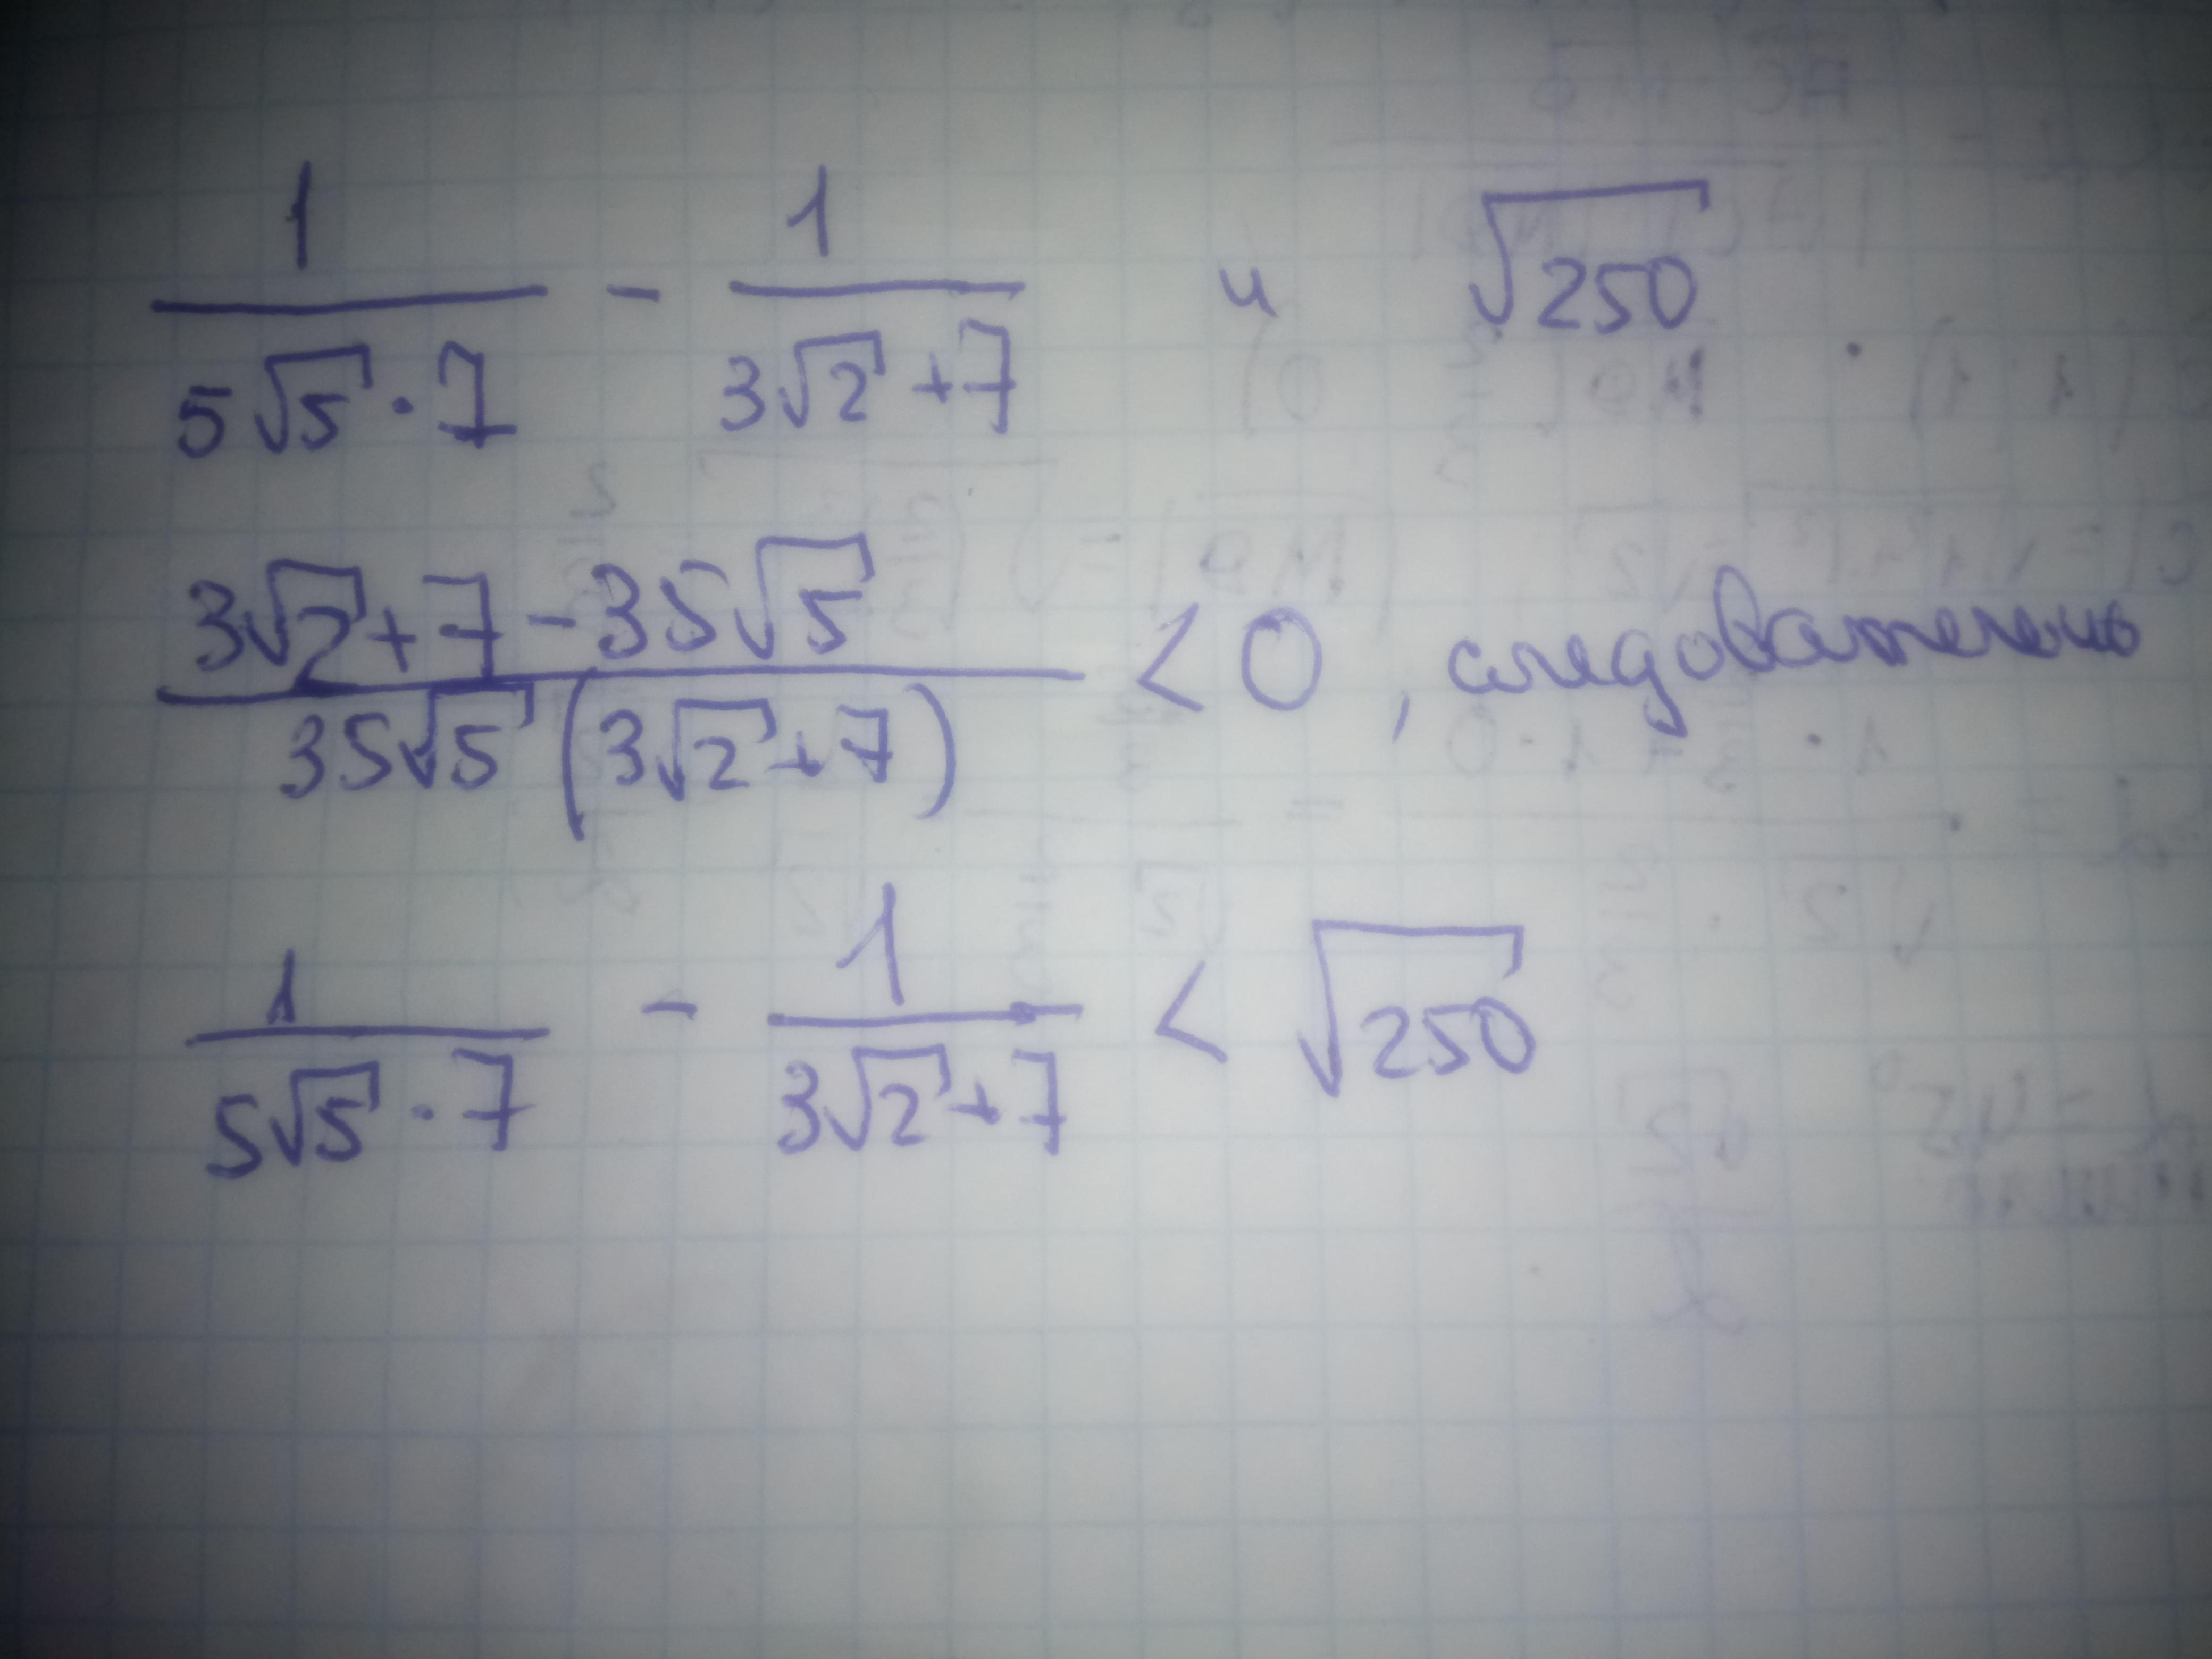 1/(5√5 · 7) - 1/(3√2 + 7) и √250
(3√2 + 7 - 35√5)/(35√5 (3√2 + 7)) < 0, следовательно
1/(5√5 · 7) - 1/(3√2 + 7) < √250